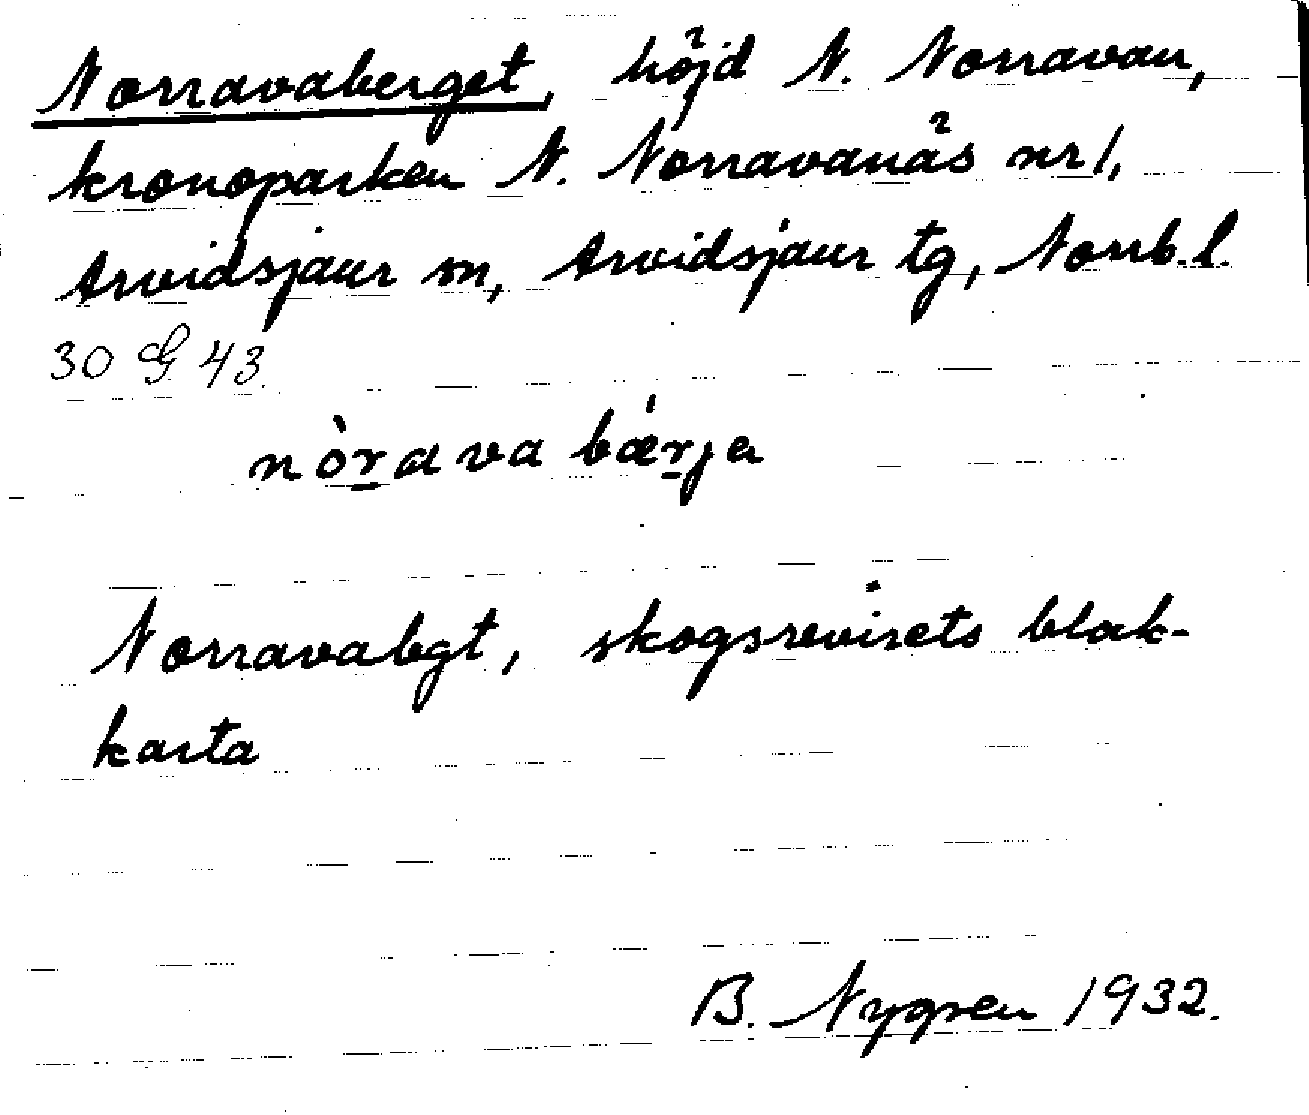 Norravaberget, höjd N. Norravan,
kronoparken N. Norravanäs nr 1,
Arvidsjaur sn, Arvidsjaur tg, Norrb. l.
30 G 43.
nòrava bǽrjɐ
Norravabgt, skogsrevirets blak-
karta
B. Nygren 1932.